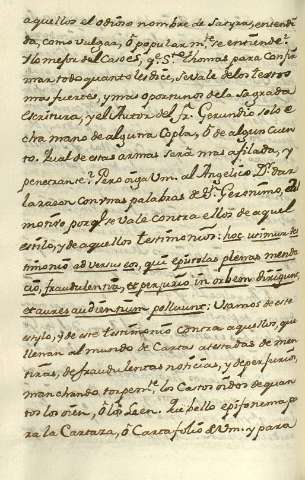 aquellos el odioso nombre de Satyra, entendi
da, como vulgar, ô popular mte. se entiende?
Y lo mejor del Caso es, qe. Sto. Thomas para Confir
mar todo quanto les dice, se vale de los testos
mas fuertes, y mas oportunos de la Sagrada
Escritura, y el Autor del fr. Gerundio solo e
cha mano de alguna Copla, ô de algun Cuen
to. Qual de estas armas será mas afilada, y
penetrante? Pero oiga Vm. al Angelico Dr. dar
la razon con unas palabras de Sn. Geronimo, el
motivo por qe. se vale contra ellos de aquel
estilo, y de aquellos testimonios: hoc utimur tes
timonio adversus eos, qui epistolas plenas menda
cio, fraudulentia, et perjurio in orbem dirigunt,
et aures audientium polluunt: Usamos de este
estylo, y de este testimonio contra aquellos, que
llenan al mundo de Cartas atestadas de men
tiras, de fraudulentas noticias, y de perjurios,
manchando torpemte. los Castos oidos de quan
tos los oien, ô los Leen. Que bello epifonema pa
ra la Cartaza, ô Cartafolio de Vm. y para